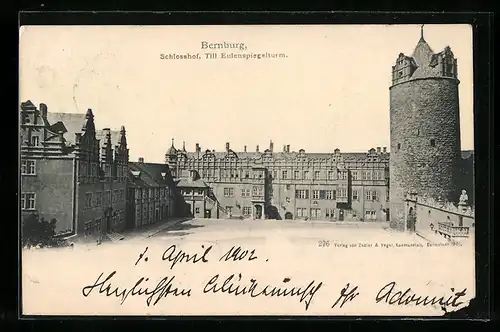 Bernburg,
Schlosshof, Till Eulenspiegelturm.
296 Verlag von Zedler & Vogel, Kunstanstalt, Darmstadt
1. April 1902.
Herzlichsten Glückwunsch Ihr